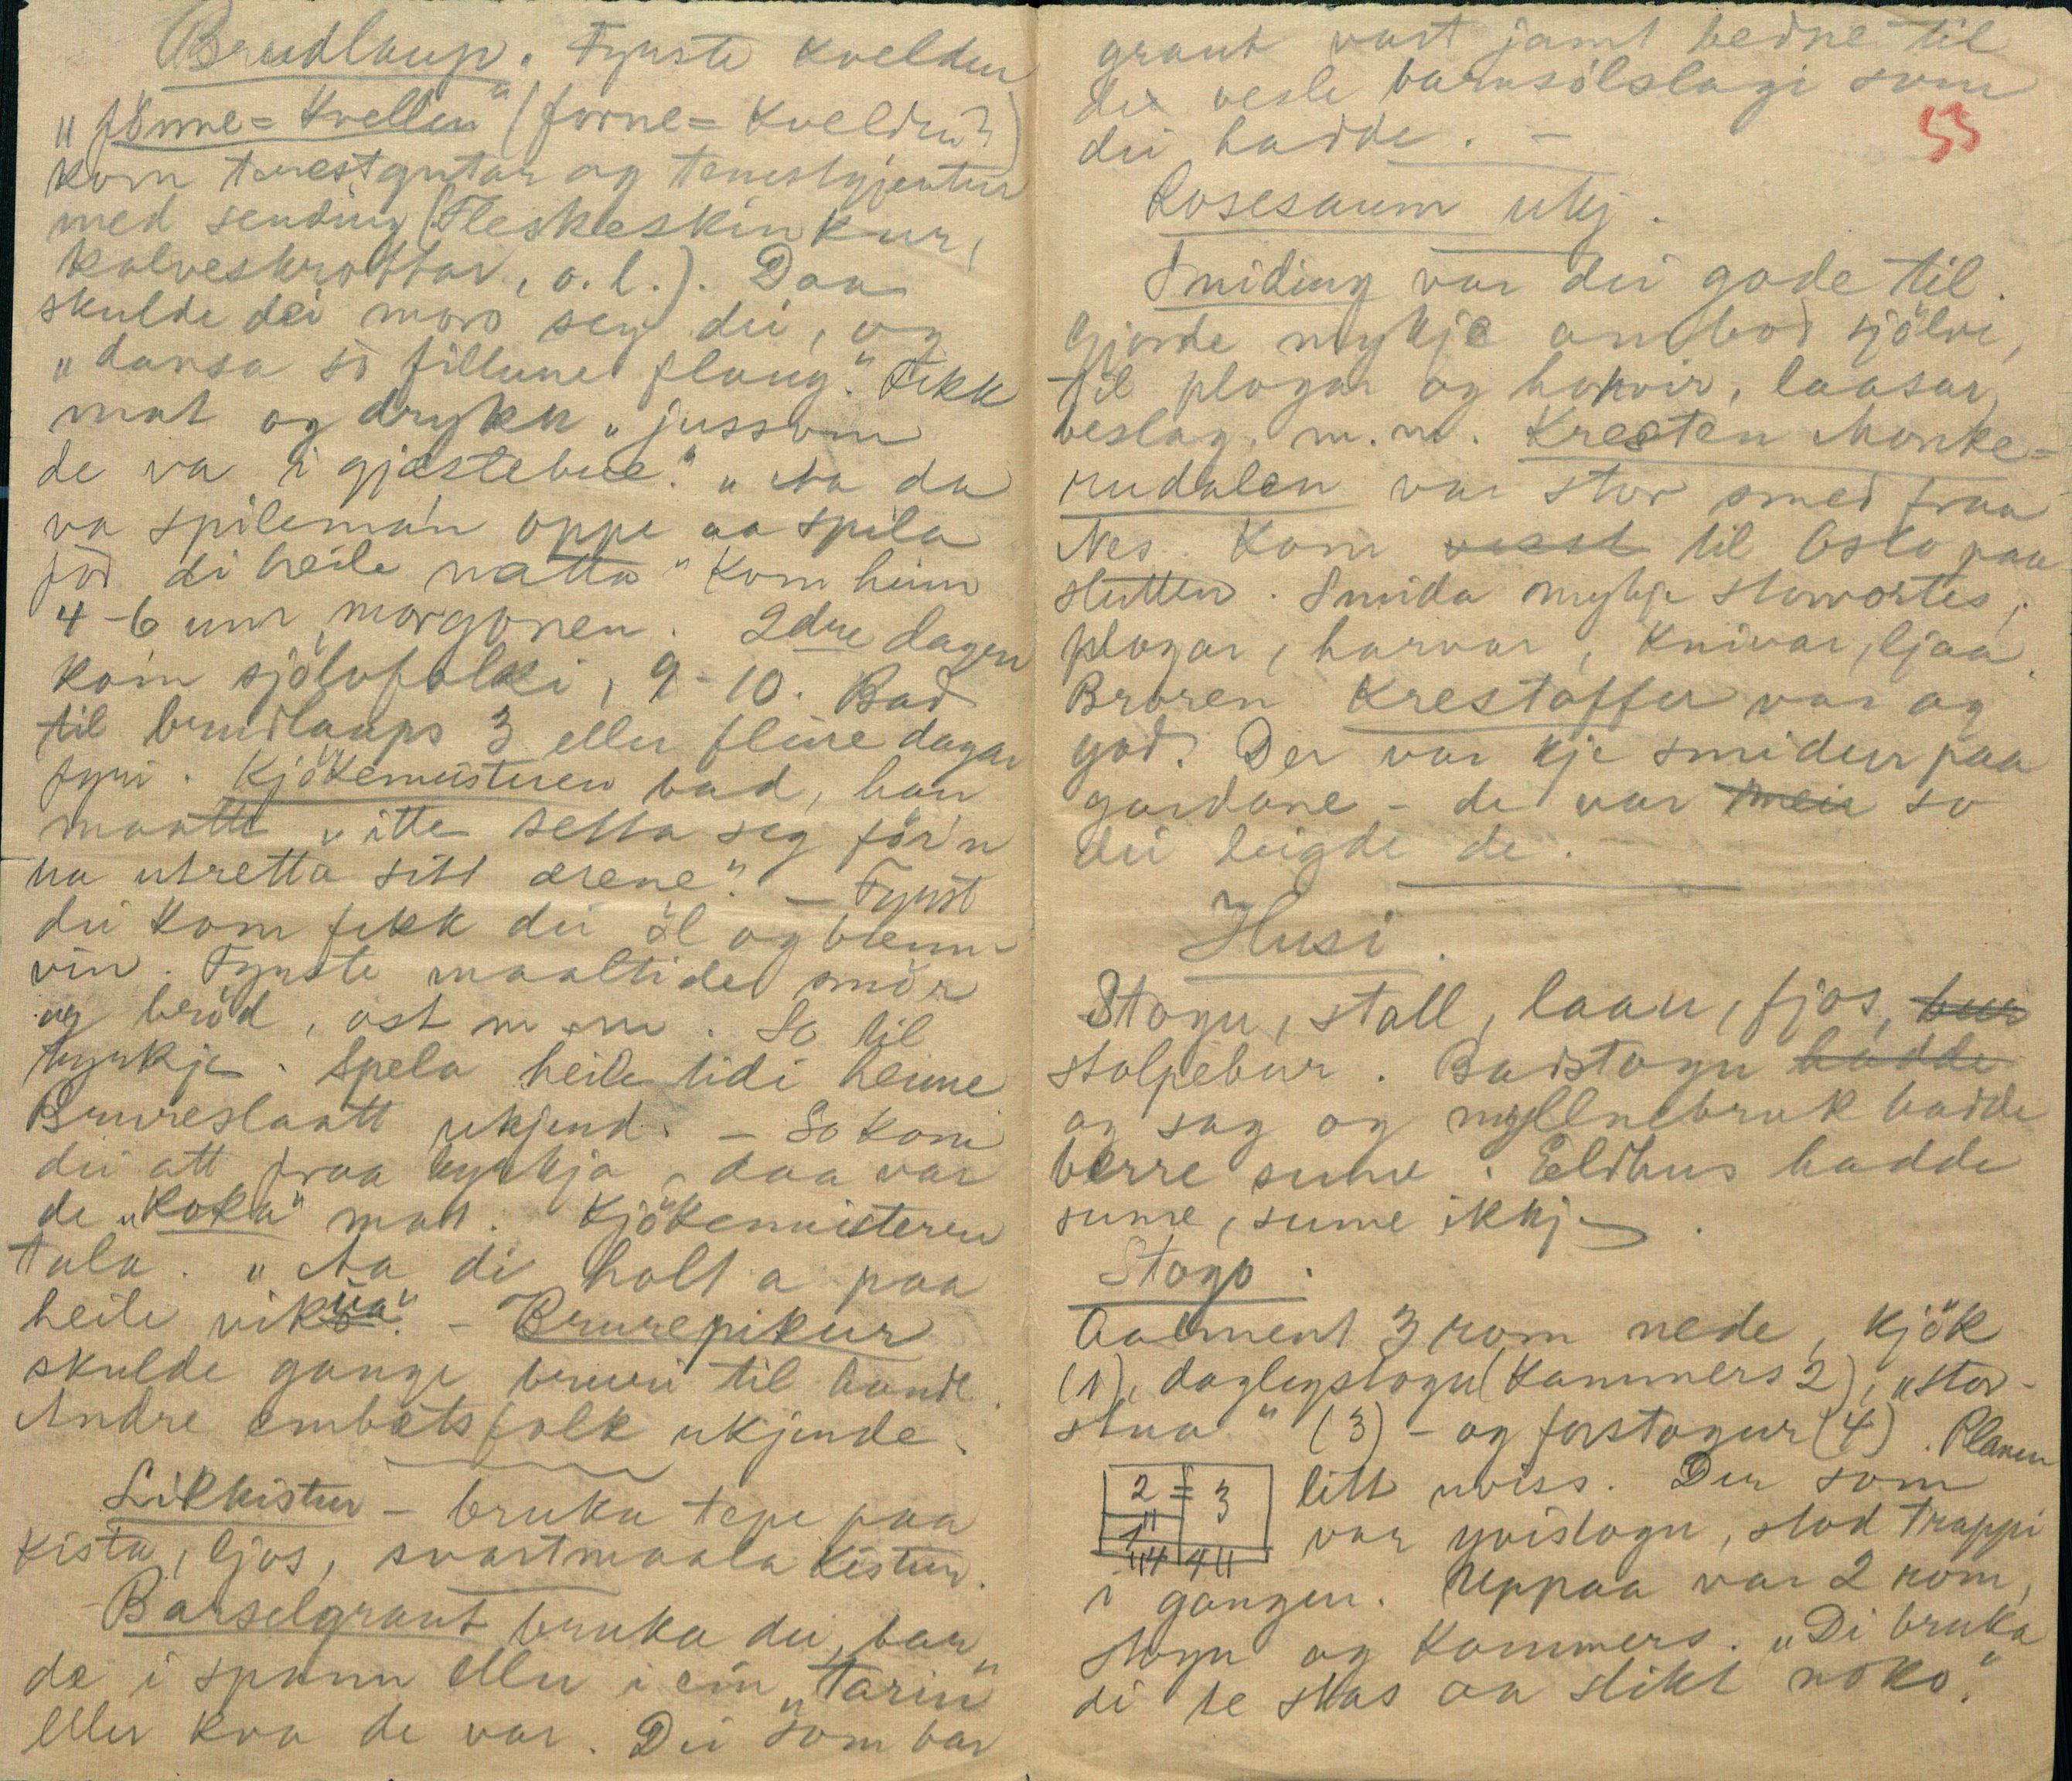 Brudlaup. Fyrste kvelden
"förne=kvellen" (forne=kvelden?)
kom tenestgutar og tenestgjentur
med sending (Fleskeskinkur,
kalveskrottar, o.l.). Daa
skulde dei moro seg dei, og
"dansa so fillune flaug." Fekk
mat og drykk "jussom
de va i gjæstebue." "Aa da
va spileman oppe aa spila
för di heile natta" Kom heim
4-6 um morgonen. 2dre dagen
kom sjölvfolki, 9-10. Bad
til brudlaups 3 eller fleire dagar
fyri. Kjökemeisteren bad, han
maatte "itte setta seg för'n
ha utretta sitt ærene". - Fyrst
dei kom fekk dei öl og brenn-
vin. Fyrste maaltidet smör
og bröd, ost m.m. So til
kyrkje. Spela heile tidi heime
Brureslaatt ukjend. - So kom
dei att fraa kyrkja, daa var
de "koka" mat. Kjökemeisteren
tala. "Aa di holt a paa
heile vikua". - Brurepikur
skulde gange bruri til hande.
Andre embætsfolk ukjende.
Likkistur - bruka tepe paa
kista, ljos, svartmaala kistur.
Barselgraut bruka dei, bar
de i spann eller i ein "tarin"
eller kva de var. Dei som bar
graut vart jamt bedne til
dei vesle barnsölslagi som
dei hadde. -
53
Rosesaum ukj.
Smiding var dei gode til.
Gjorde mykje ambod sjölve,
til plogar og horvir, laasar,
beslag, m.m. Kresten Monke=
rudalen var stor smed fraa
Nes. Kom visst til Oslo paa
slutten. Smida mykje storvortes,
plogar, harvar, knivar, ljaa.
Broren Krestoffer var og
god. Der var kje smidjur paa
gardane - de var meir so
dei leigde de.
Husi.
Stogu, stall, laau, fjos, bur
stolpebur. Badstogu hadde
og sag og myllnebruk hadde
berre sume. Eldhus hadde
sume, sume ikkje.
Stogo.
Aalment 3 rom nede, kjök
(1), daglegstogu (kammers 2), "stor-
stua" (3) - og forstogur (4). Planen
2 = 3
1
4 4
litt uviss. Der som
var yvistogu, stod trappi
i gangen. Uppaa var 2 rom,
stogu og kammers. "Di bruka
di te stas aa slikt noko."